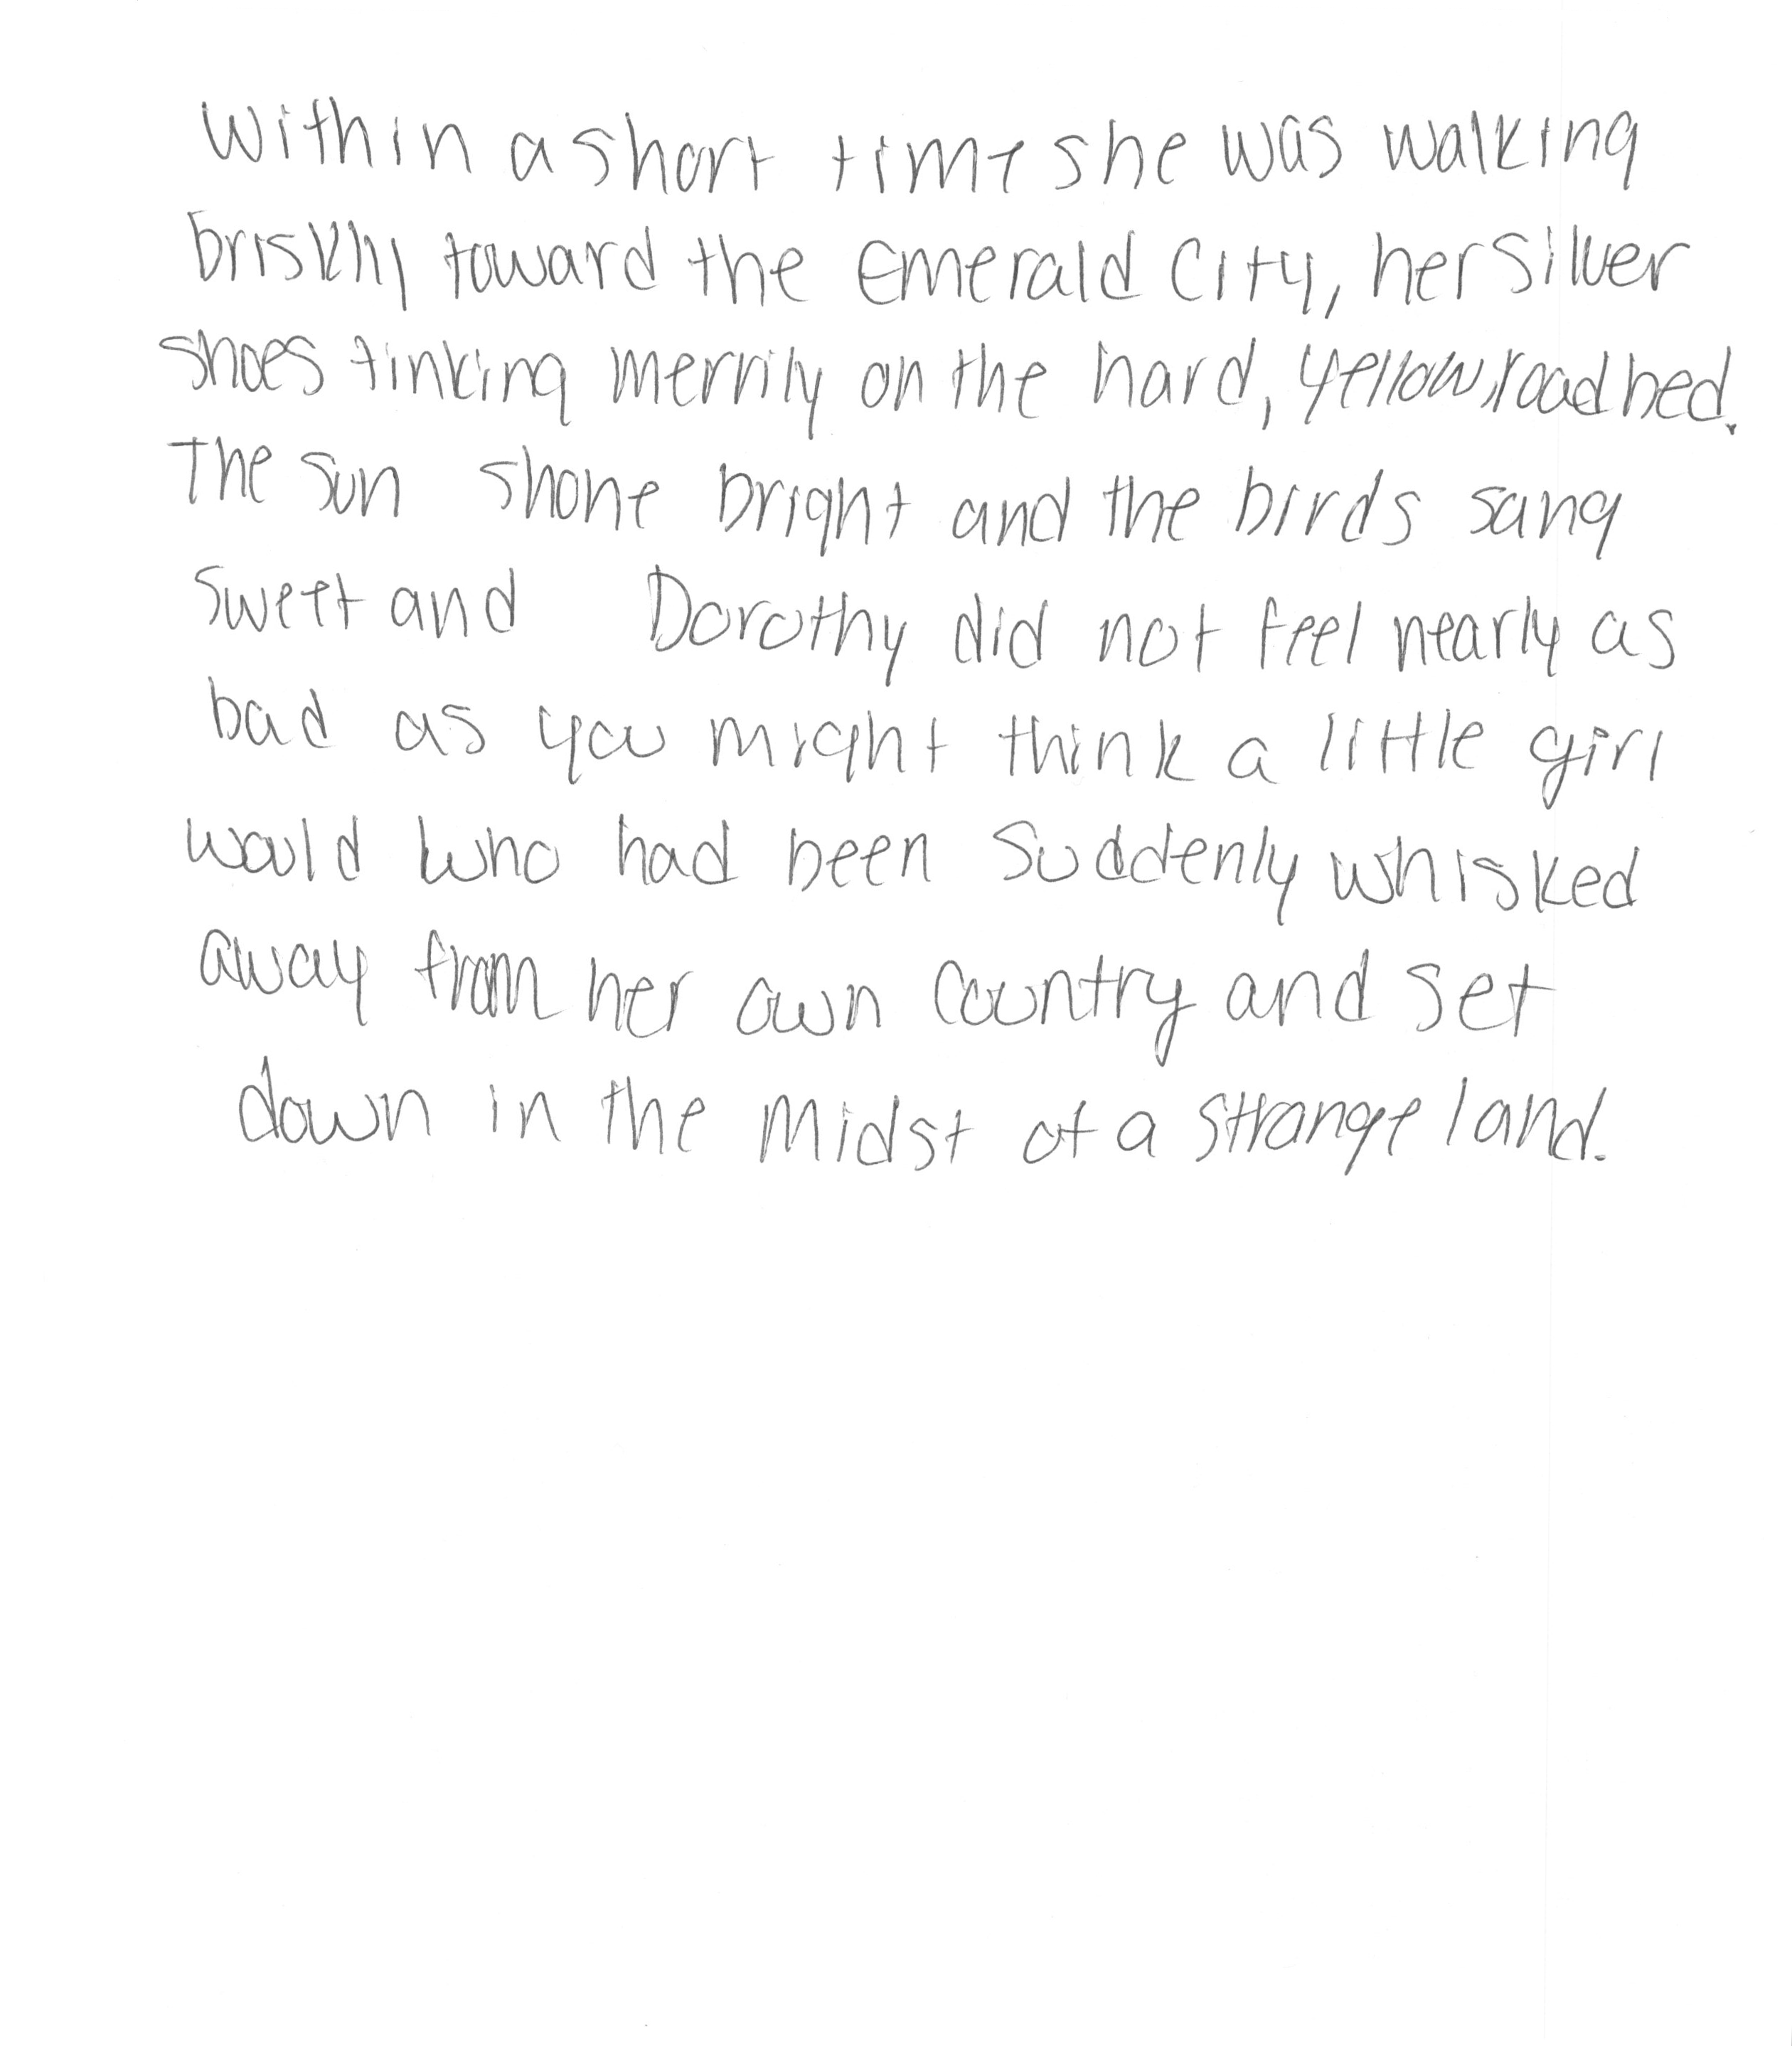 Within a short time she was walking
briskly toward the Emerald City, her Silver
Shoes tinking merrily on the hard, yellow roadbed.
The sun shone bright and the birds sang
sweet and Dorothy did not feel nearly as
bad as you might think a little girl
would who had been suddenly whisked
away from her own country and set
down in the midst of a strange land.